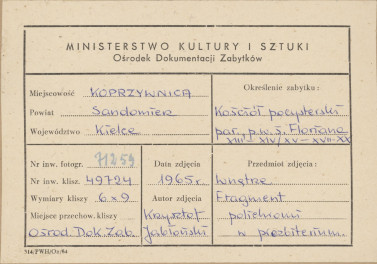 MINISTERSTWO KULTURY I SZTUKI
Ośrodek Dokumentacji Zabytków
Miejscowość KOPRZYWNICA
Powiat Sandomierz
Województwo Kielce
Określenie zabytku:
Kościół pocysterski
par. p.w. ś. Floriana
XIII – XIV/XV – XVII-XX
Nr inw. fotogr. 71259
Nr inw. klisz. 49724
Wymiary kliszy 6x9
Miejsce przechow. kliszy
Ośrod. Dok. Zab.
Data zdjęcia
1965 r.
Autor zdjęcia
Krzysztof
Jabłoński
Przedmiot zdjęcia:
Wnętrze
Fragment
polichromii
w prezbiterium.